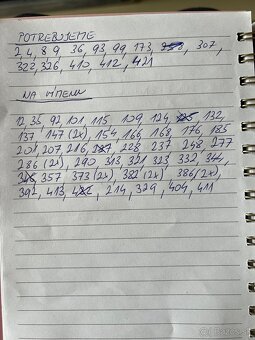 POTREBUJEME
2, 4, 8, 9, 36, 93, 99, 173, 307,
322, 326, 410, 412, 421
NA VÝMENU
12, 35, 92, 101, 115, 109, 124, 132,
137, 147 (2x), 154, 166, 168, 176, 185
201, 207, 216, 228, 237, 248, 277
286 (2x), 290, 313, 321, 323, 332, 344,
357, 373 (2x), 382 (2x), 386 (2x),
392, 413, 214, 329, 404, 411